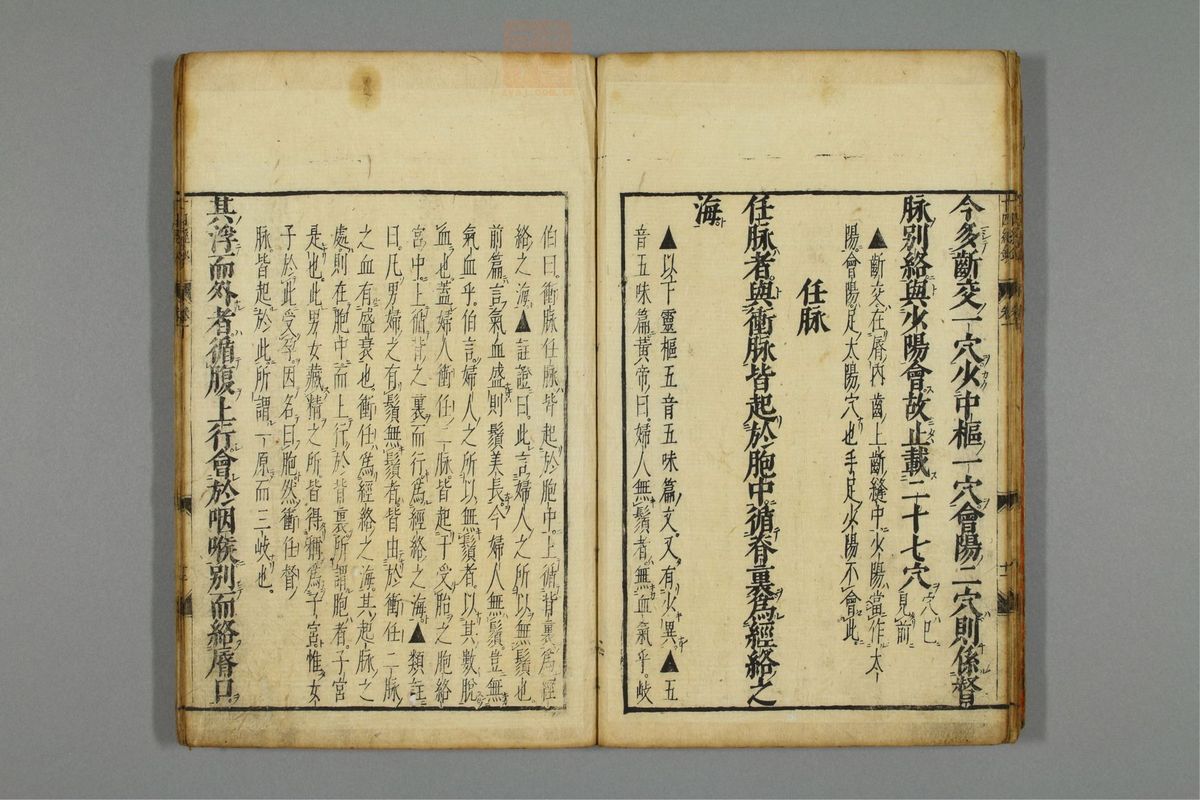 今多斷交一穴少中樞一穴會陽二穴則係督
脉別絡與少陽會故止載二十七穴穴已見前
▲斷交在唇內齒上斷縫中少陽當作太
陽會陽足太陽穴也手足少陽不會此
任脉
任脉者與衝脉皆起於胞中循脊裏爲經絡之
海
▲以下靈樞五音五味篇文又有少異▲五
音五味篇黃帝曰婦人無鬚者無血氣乎岐
伯曰衝脉任脉皆起於胞中上循背裏爲經
絡之海▲註證曰此言婦人之所以無鬚也
前篇言氣血盛則鬚美長今婦人無鬚豈無
氣血乎伯言婦人之所以無鬚者以其數脫
血也蓋婦人衝任二脉皆起于受胎之胞絡
宮中上循背之裏而行爲經絡之海▲類註
曰凡男婦之有鬚無鬚者皆由於衝任二脉
之血有盛衰也衝任爲經絡之海其起脉之
處則在胞中而上行於背裏所謂胞者子宮
是也此男女藏精之所皆得稱爲子宮惟女
子於此受孕因名曰胞然衝任督
脉皆起於此所謂一原而三岐也
其浮而外者循腹上行會於咽喉別而絡唇口